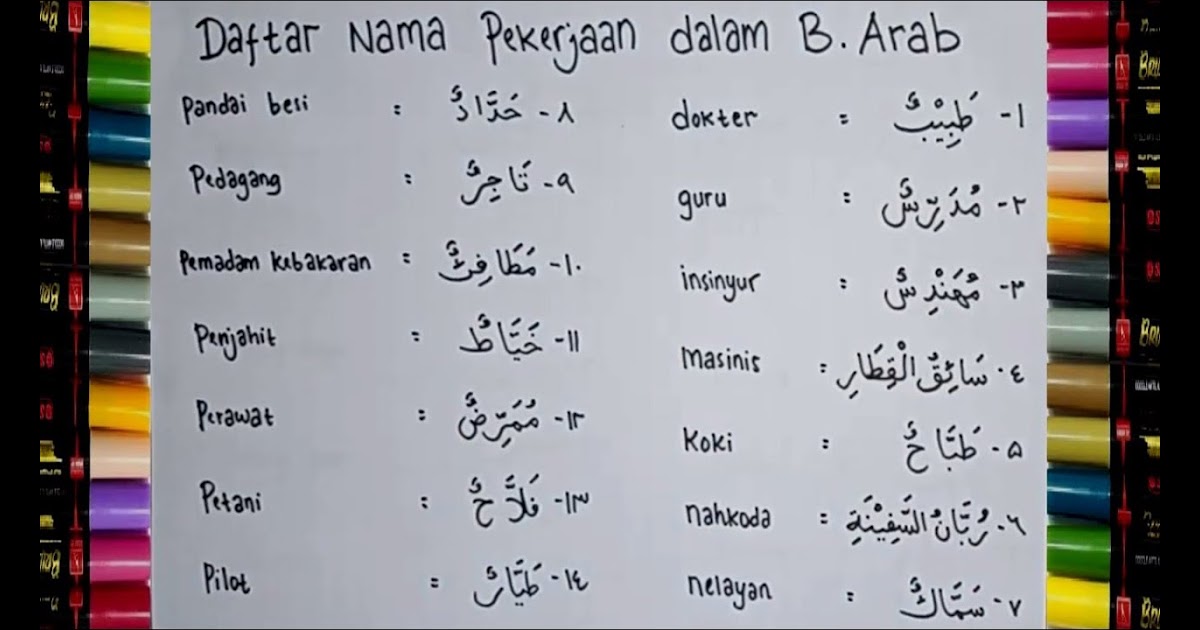 Daftar Nama Pekerjaan dalam B. Arab
١- طَبِيْبٌ : dokter
٢- مُدَرِّسٌ : guru
٣- مُهَنْدِسٌ : insinyur
٤- سَائِقُ الْقِطَارِ : Masinis
٥- طَبَّاخٌ : Koki
٦- رُبَّانُ السَّفِيْنَةِ : nahkoda
٧- سَمَّاكٌ : nelayan
٨- حَدَّادٌ : Pandai besi
٩- تَاجِرٌ : Pedagang
١٠- مَطَافِئٌ : Pemadam kebakaran
١١- خَيَّاطٌ : Penjahit
١٢- مُمَرِّضٌ : Perawat
١٣- فَلاَّحٌ : Petani
١٤- طَيَّارٌ : Pilot